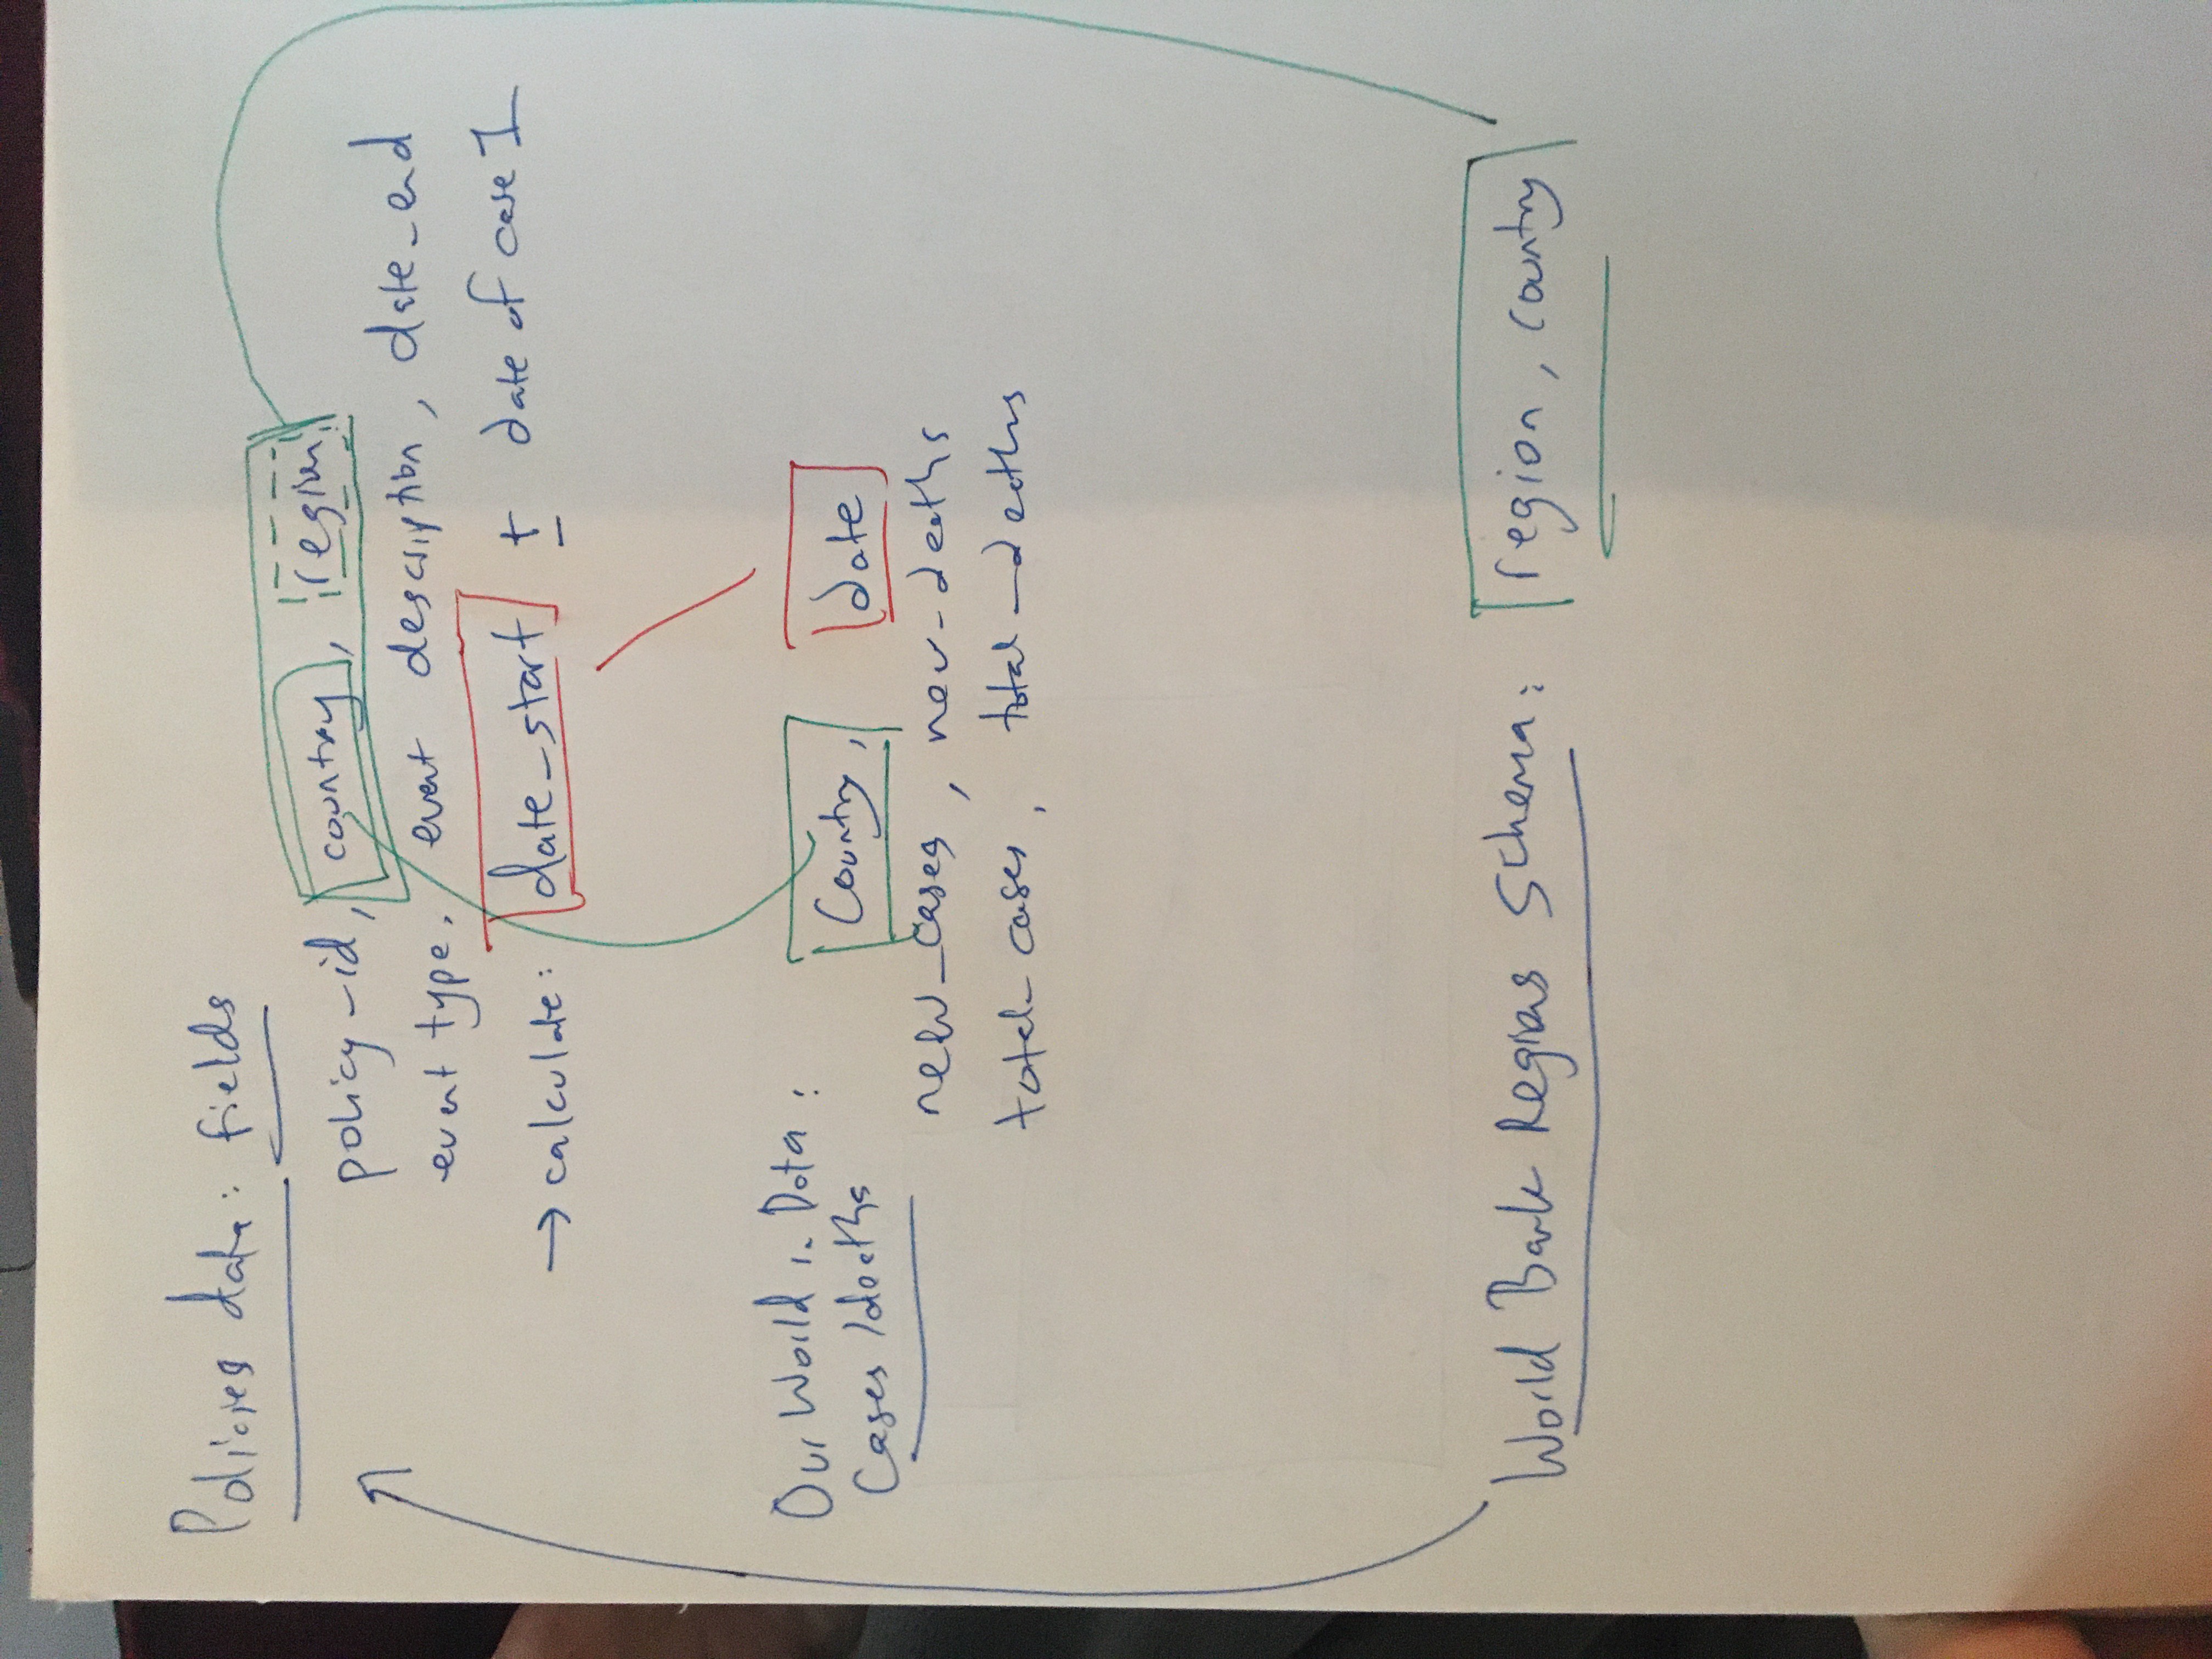 Policies data: fields
policy_id, country, region
event type, event description, date_end
→ calculate: date_start ± date of case 1
Our World in Data: Country, date
Cases/deaths
new_cases, new_deaths
total_cases, total_deaths
World Bank Regions Schema: region, country